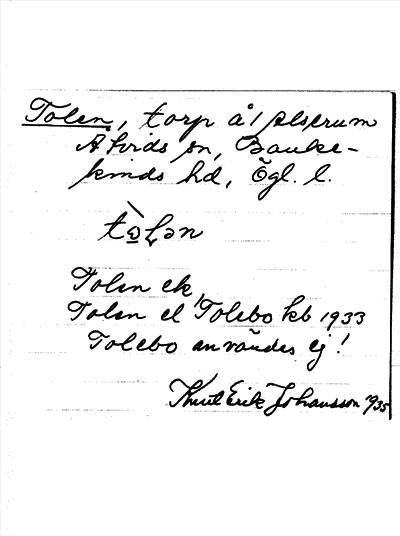 Tolen, torp å
Åtvids sn, Banke-
kinds hd, Ögl. l.
Tolen ek,
Tolen el Tolebo kb 1933
Tolebo användes ej!
Knut Erik Johansson 1935